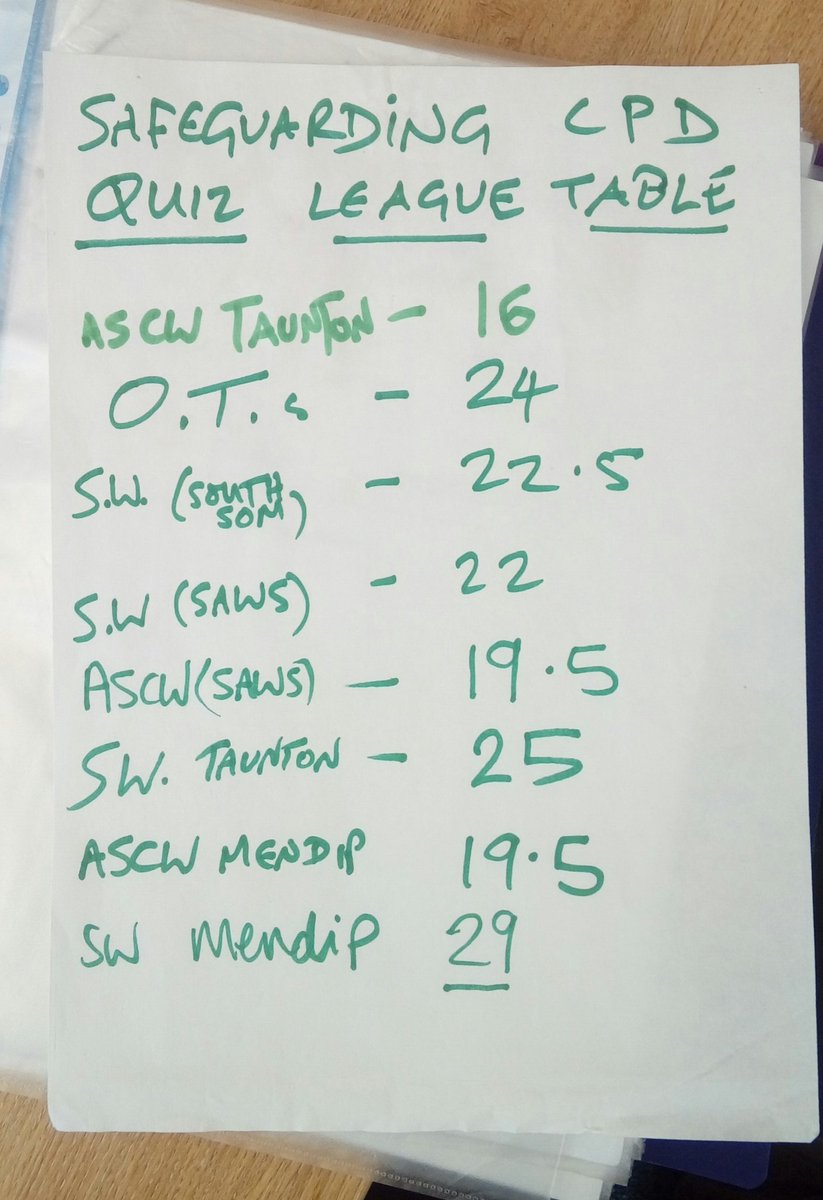 SAFEGUARDING CPD
QUIZ LEAGUE TABLE
ASCW TAUNTON - 16
O.T.s - 24
S.W. (SOUTH SOM) - 22.5
S.W (SAWS) - 22
ASCW (SAWS) - 19.5
SW. TAUNTON - 25
ASCW MENDIP 19.5
SW Mendip 29